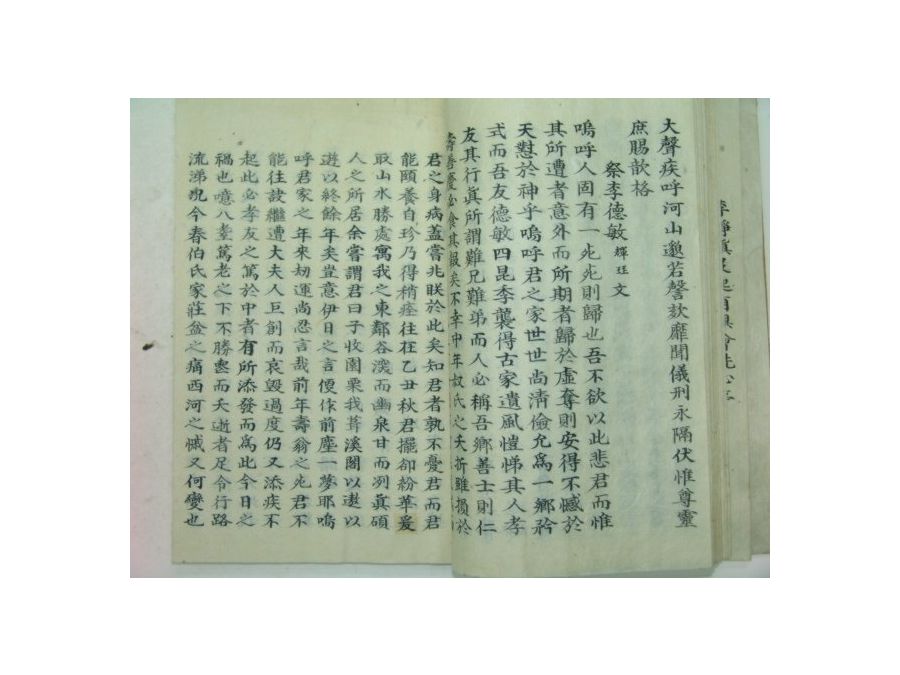 大聲疾呼河山邈若謦欬靡聞儀刑永隔伏惟尊靈
庶賜歆格
祭李德敏文
嗚呼人固有一死死則歸也吾不欲以此悲君而惟
其所遭者意外而所期者歸於虛奪則安得不憾於
天懟於神乎嗚呼君之家世世尚清儉允爲一鄉矜
式而吾友德敏四昆季襲得古家遺風愷悌其人孝
友其行眞所謂難兄難弟而人必稱吾鄉善士則仁
必食其報矣不幸中年奴氏之夭折雖損於
君之身病蓋嘗兆眹於此矣知君者孰不憂君而君
能頤養自珍乃得稍痊往在乙丑秋君擺卻紛華爰
取山水勝處寓我之東鄰谷深而幽泉甘而冽眞碩
人之所居余嘗謂君曰子收園栗我葺溪閣以遨以
遊以終餘年矣豈意伊日之言便作前塵一夢耶嗚
呼君家之年來劫運尚忍言哉前年壽翁之死君不
能往設繼遭大夫人巨創而哀毀過度仍又添疾不
起此必孝友之篤於中者有所添發而爲此今日之
禍也噫八耋篤老之下不勝喪而夭逝者足令行路
流涕況今春伯氏家莊盆之痛西河之慽又何變也